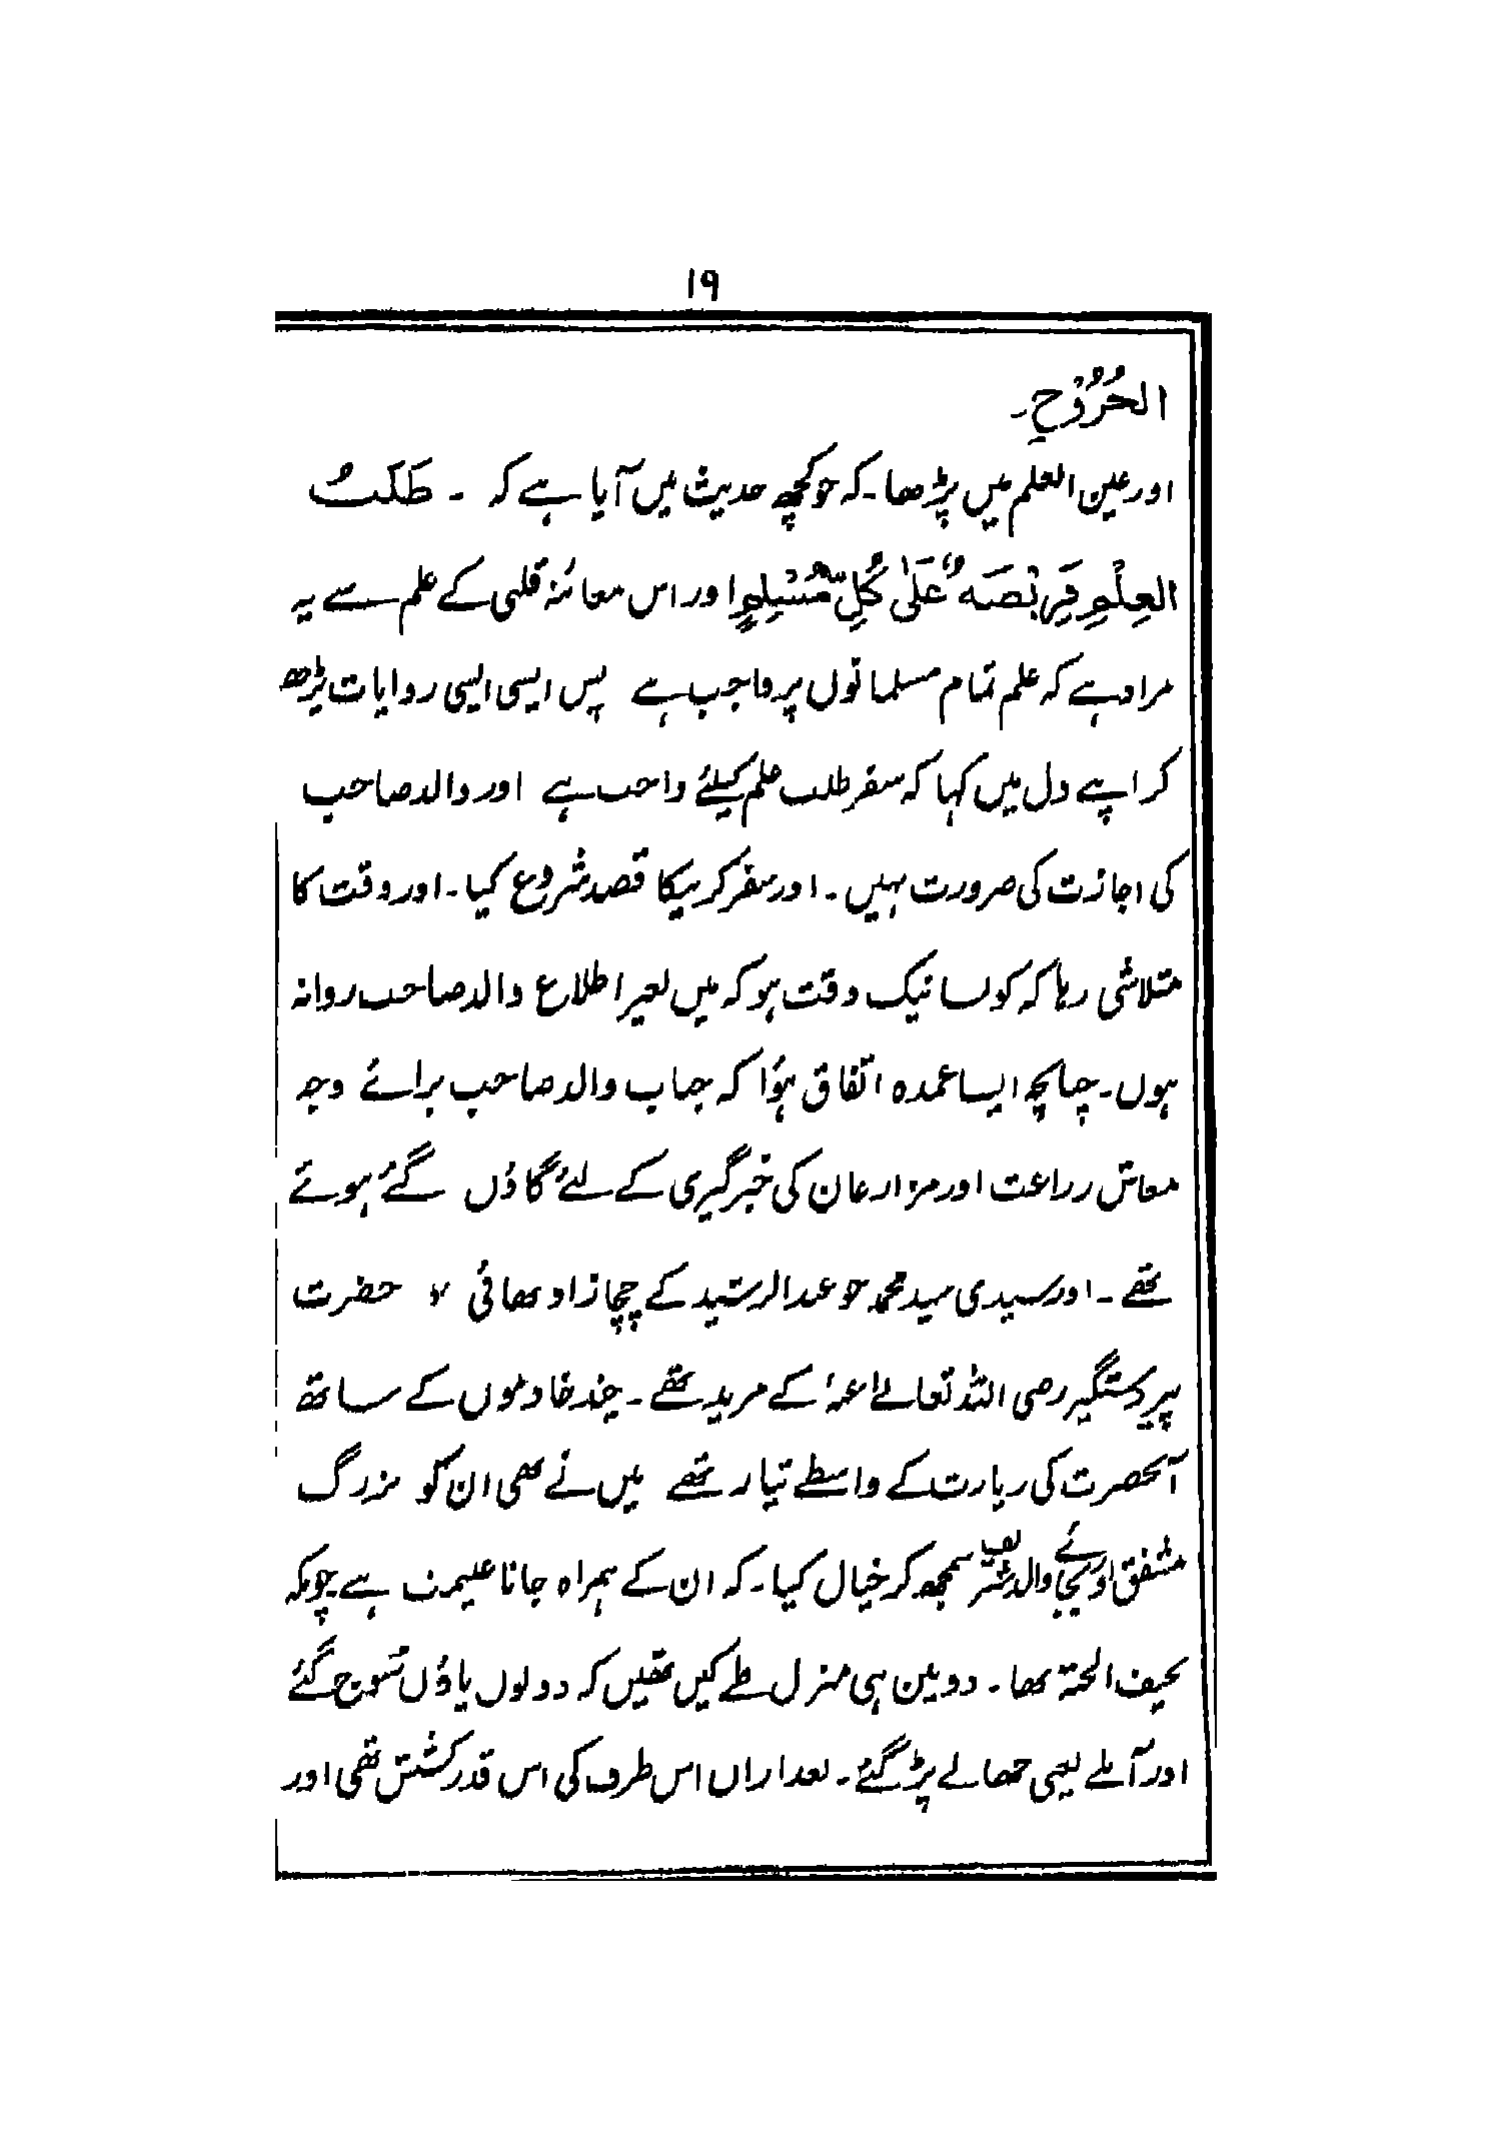 ۱۹
الخُرُوْجِ۔
اور عین العلم میں پڑھا۔ کہ جو کچھ حدیث میں آیا ہے کہ ۔ طَلَبُ
العِلْمِ فَرِیْضَۃٌ عَلٰی کُلِّ مُسْلِمٍ اور اس معائنہ قلبی کے علم سے یہ
مراد ہے کہ علم تمام مسلمانوں پر واجب ہے پس ایسی ایسی روایات پڑھ
کر اپنے دل میں کہا کہ سفر طلب علم کیلئے واجب ہے اور والد صاحب
کی اجازت کی ضرورت نہیں۔ اور سفر کرنیکا قصد شروع کیا۔ اور وقت کا
متلاشی رہا کہ کونسا نیک وقت ہو کہ میں بغیر اطلاع والد صاحب روانہ
ہوں۔ چنانچہ ایسا عمدہ اتفاق ہؤا کہ جناب والد صاحب برائے وجہ
معاش زراعت اور مزارعان کی خبر گیری کے لئے گاؤں گئے ہوئے
تھے۔ اور سیدی سید محمد جو عبدالرشید کے چچازاد بھائی حضرت
پیر دستگیر رضی اللہ تعالےٰ عنہٗ کے مرید تھے۔ چند خادموں کے ساتھ
آنحضرت کی زیارت کے واسطے تیار تھے میں نے بھی ان کو بزرگ
مشفق اور بجائے والد سمجھ کر خیال کیا۔ کہ ان کے ہمراہ جانا غنیمت ہے چونکہ
نحیف الجثۃ تھا۔ دو تین ہی منزل طے کیں تھیں کہ دونوں پاؤں سُوج گئے
اور آبلے یعنی چھالے پڑ گئے۔ بعد ازاں اس طرف کی اس قدر کشش تھی اور